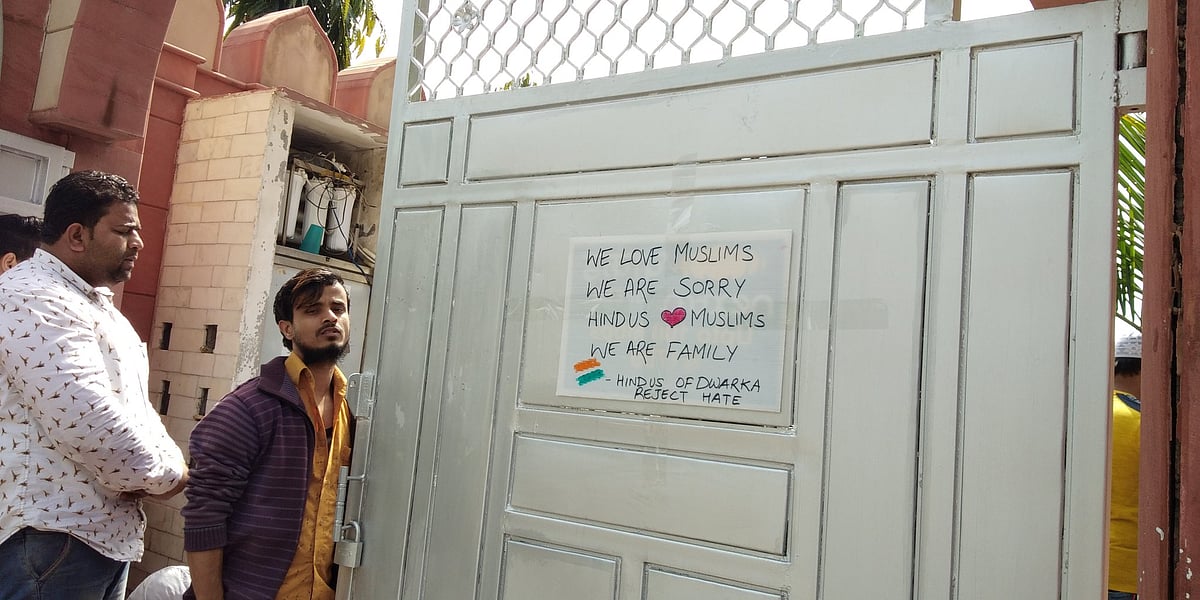 WE LOVE MUSLIMS
WE ARE SORRY
HINDUS ❤ MUSLIMS
WE ARE FAMILY
- HINDUS OF DWARKA
REJECT HATE